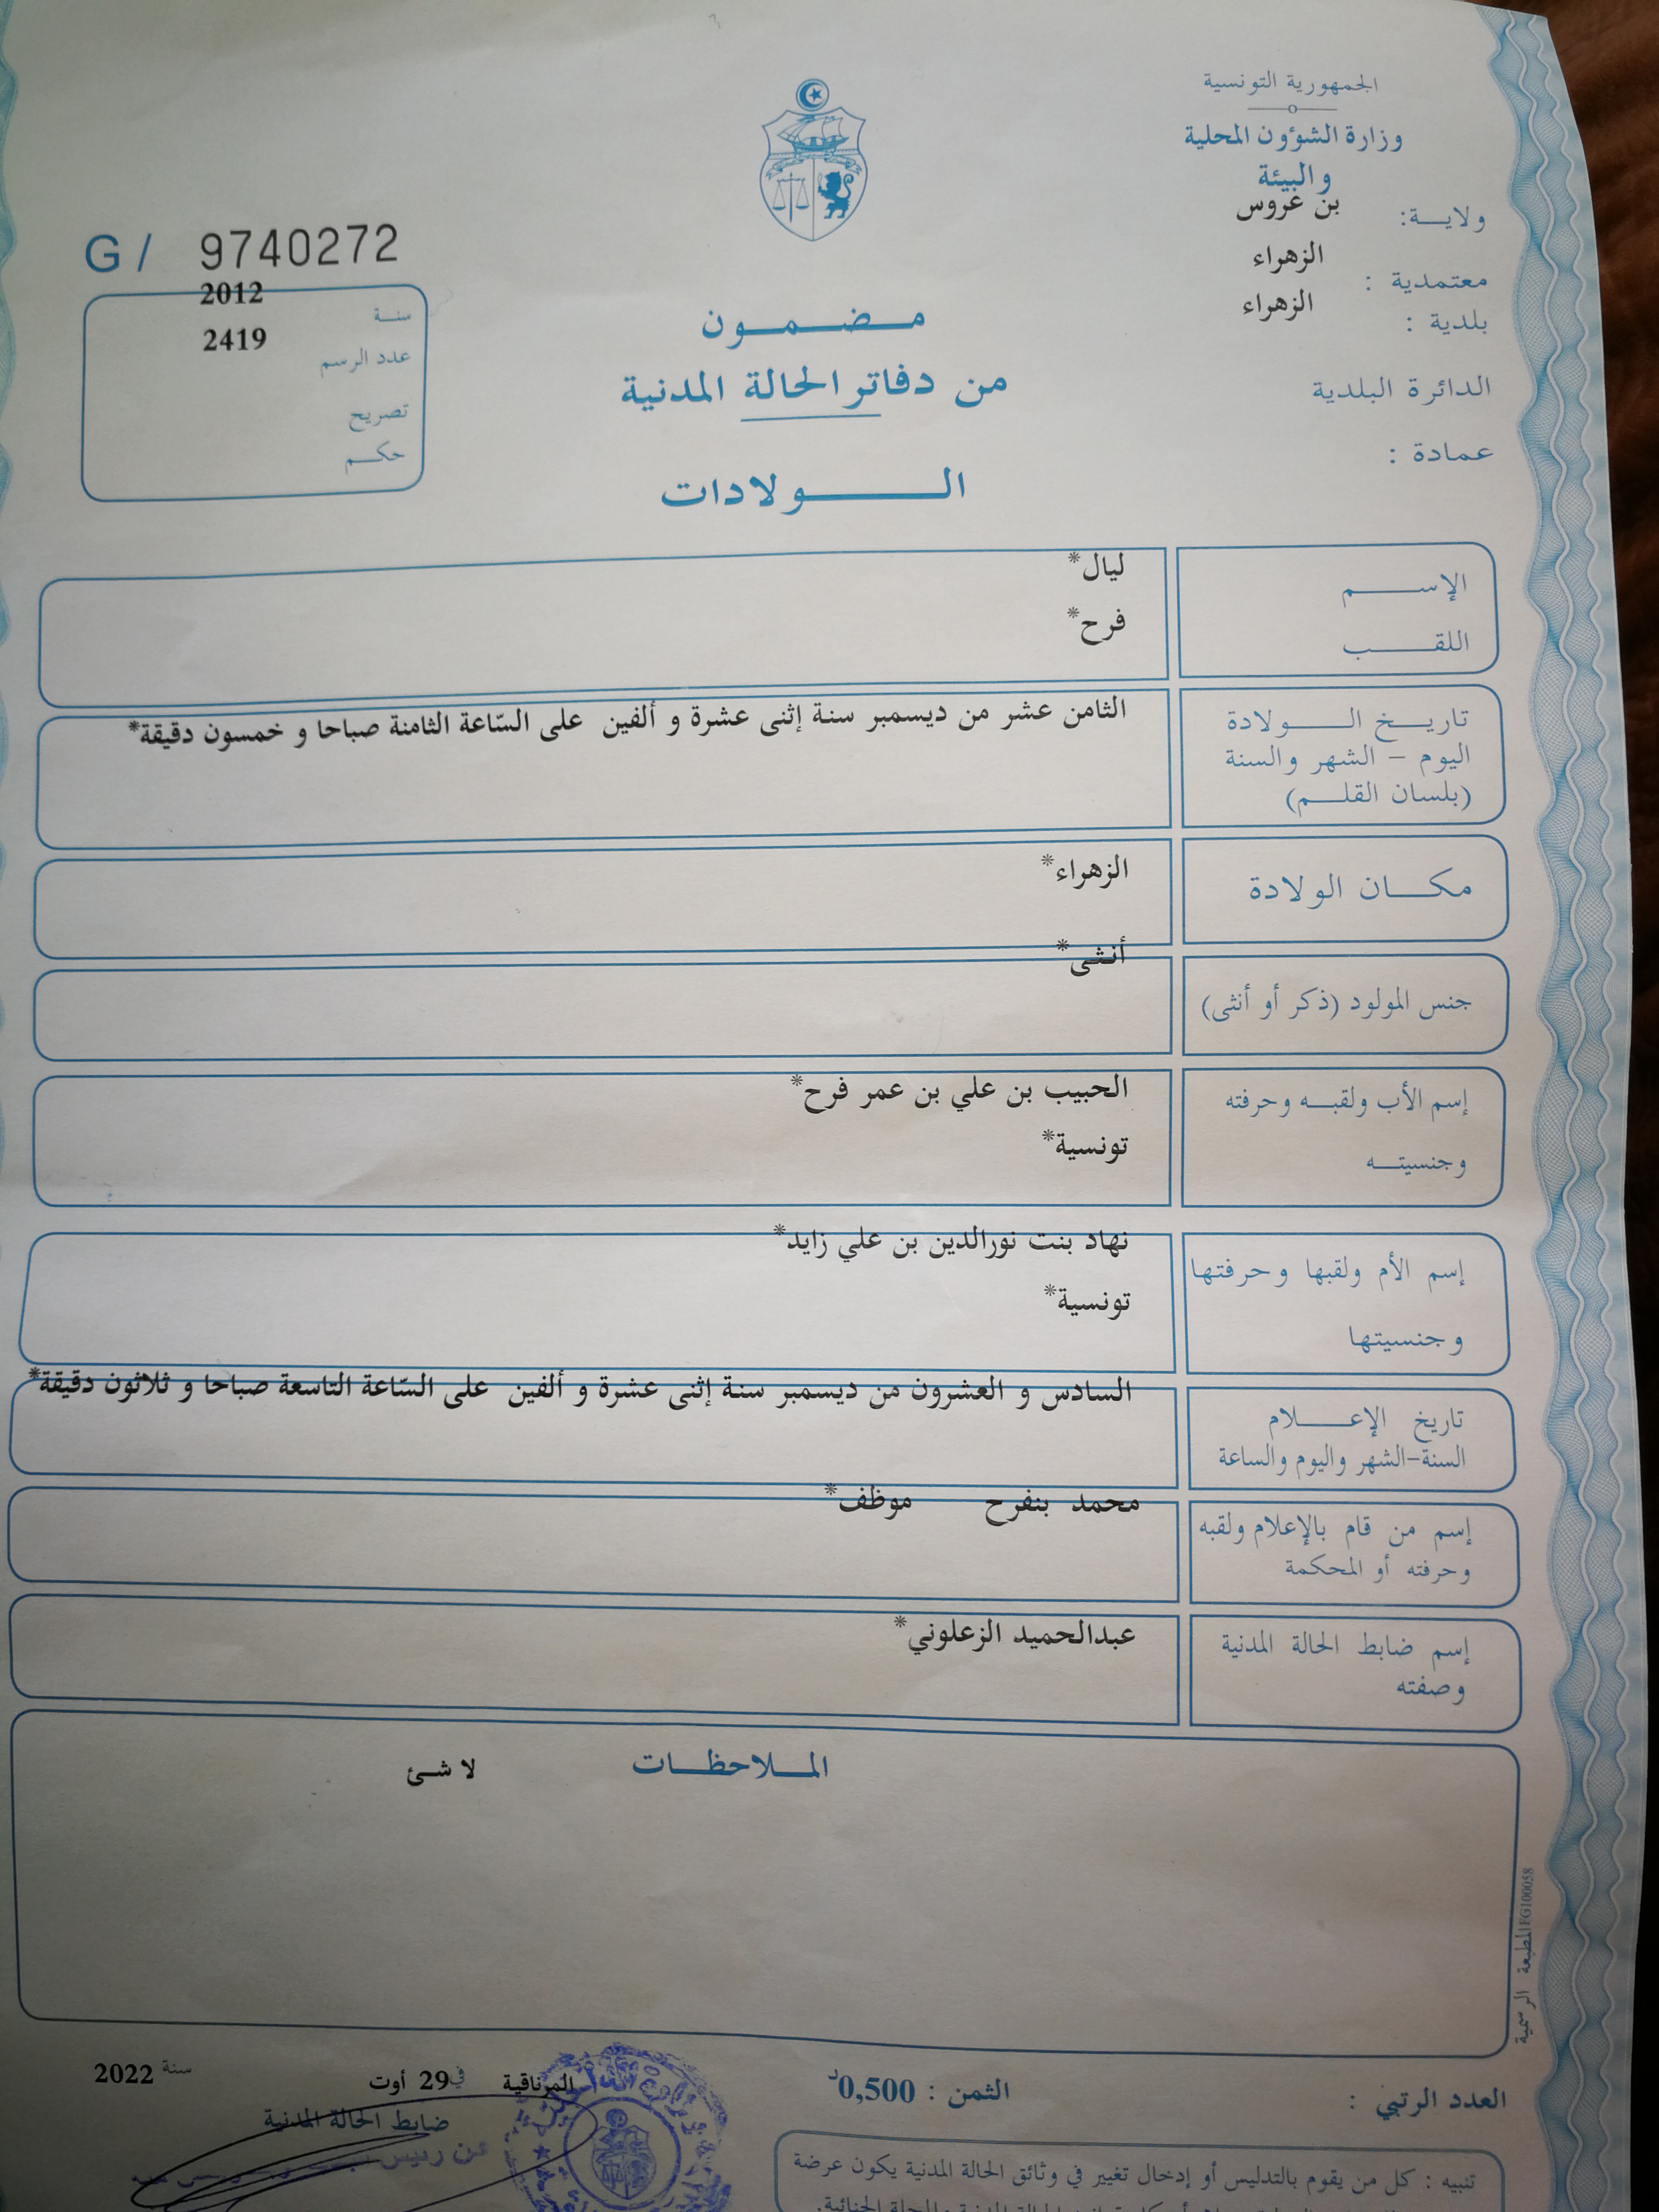 الجمهورية التونسية
وزارة الشؤون المحلية
والبيئة
ولاية: بن عروس
معتمدية : الزهراء
بلدية : الزهراء
الدائرة البلدية
عمادة :
G / 9740272
سنة 2012
عدد الرسم 2419
تصريح
حكم
مضمون
من دفاتر الحالة المدنية
الولادات
الإسم ليال*
اللقب فرح*
تاريخ الولادة الثامن عشر من ديسمبر سنة إثنى عشرة و ألفين على السّاعة الثامنة صباحا و خمسون دقيقة*
اليوم – الشهر والسنة
(بلسان القلم)
مكان الولادة الزهراء*
جنس المولود (ذكر أو أنثى) أنثى*
إسم الأب ولقبه وحرفته الحبيب بن علي بن عمر فرح*
وجنسيته تونسية*
إسم الأم ولقبها وحرفتها نهاد بنت نورالدين بن علي زايد*
وجنسيتها تونسية*
تاريخ الإعلام السادس و العشرون من ديسمبر سنة إثنى عشرة و ألفين على السّاعة التاسعة صباحا و ثلاثون دقيقة*
السنة-الشهر واليوم والساعة
إسم من قام بالإعلام ولقبه محمد بنفرح موظف*
وحرفته أو المحكمة
إسم ضابط الحالة المدنية عبدالحميد الزعلوني*
وصفته
الملاحظات لا شئ
المطبعة الرسمية EG100058
العدد الرتبي :
الثمن : 0,500د
المرناقية في 29 أوت سنة 2022
ضابط الحالة المدنية
عن رئيس
تنبيه : كل من يقوم بالتدليس أو إدخال تغيير في وثائق الحالة المدنية يكون عرضة